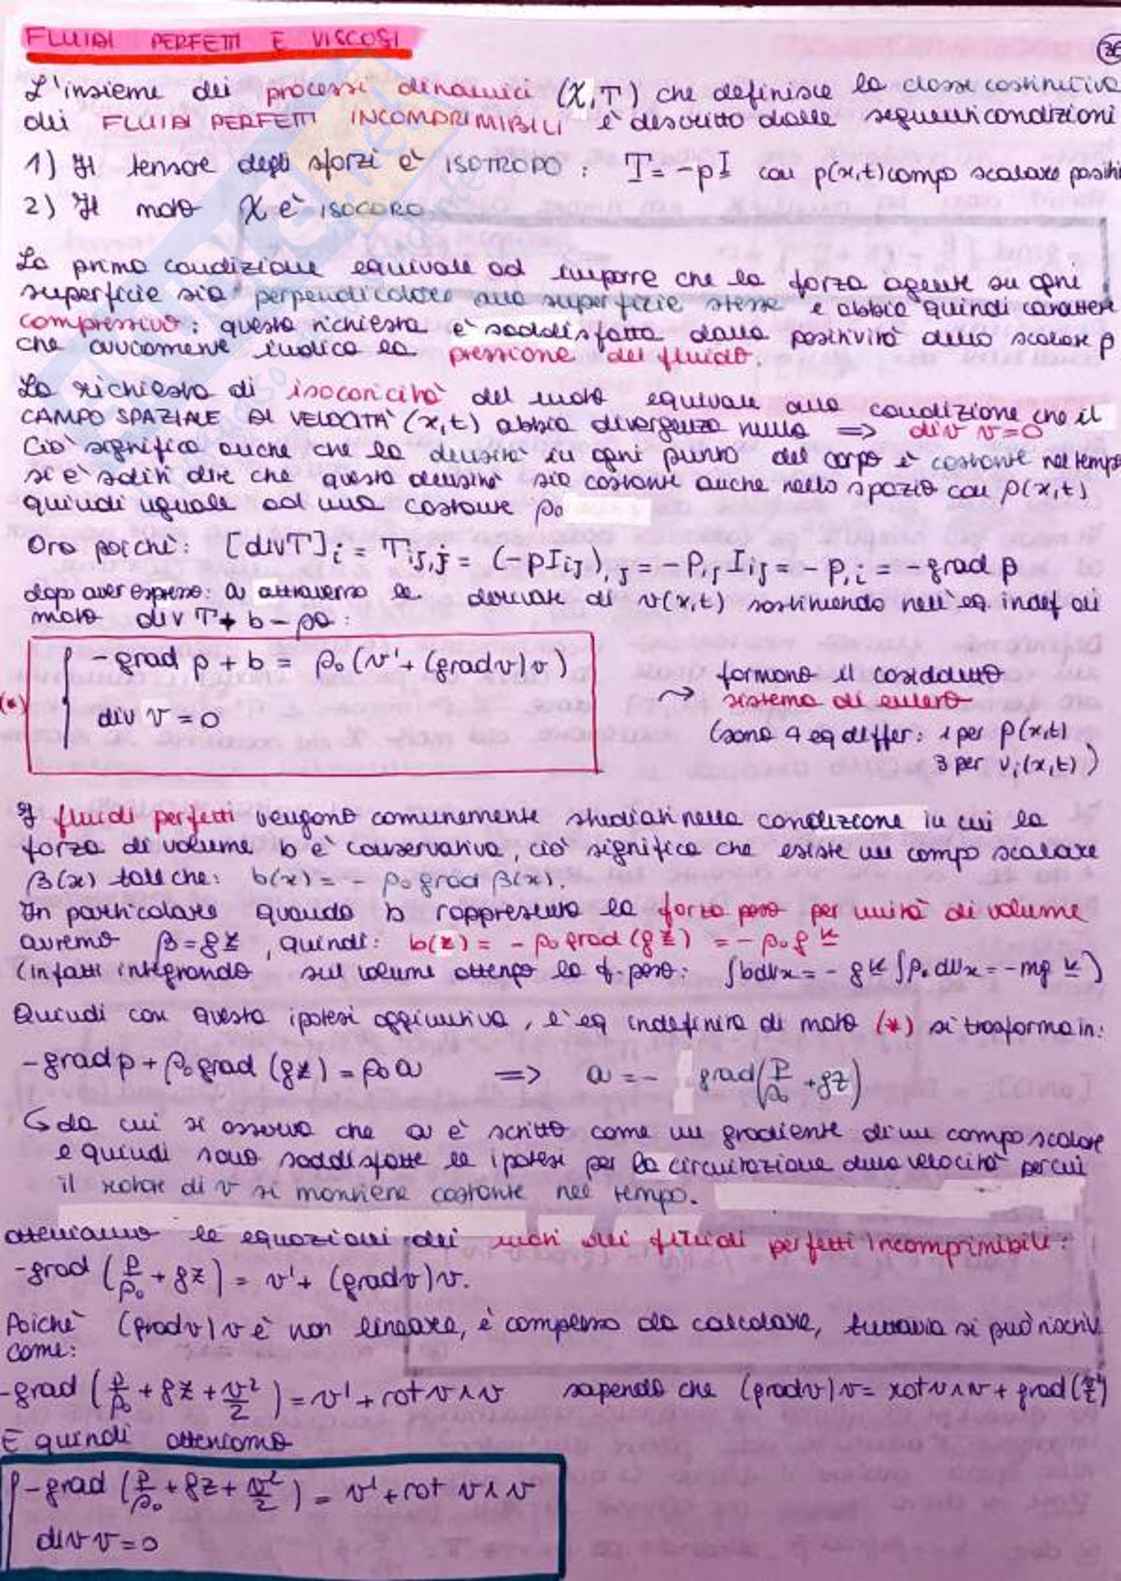 FLUIDI PERFETTI E VISCOSI
36
L'insieme dei processi dinamici (χ,T) che definisce la classe costitutiva
dei FLUIDI PERFETTI INCOMPRIMIBILI è descritto dalle seguenti condizioni
1) Il tensore degli sforzi è ISOTROPO : T = -pI con p(x,t) campo scalare positi
2) Il moto χ è ISOCORO
La prima condizione equivale ad imporre che la forza agente su ogni
superficie sia perpendicolare alla superficie stessa e abbia quindi carattere
compressivo: questa richiesta è soddisfatta dalla positività dello scalare p
che ovviamente indica la pressione del fluido.
La richiesta di isocoricità del moto equivale alla condizione che il
CAMPO SPAZIALE DI VELOCITA' (x,t) abbia divergenza nulla => div v=0
Ciò significa anche che la densità in ogni punto del corpo è costante nel tempo
si è soliti dire che questa densità sia costante anche nello spazio con ρ(x,t)
quindi uguale ad una costante ρ₀
Ora poichè: [divT]i = Tij,j = (-pIij),j = -P,j Iij = - P,i = -grad p
dopo aver espresso a attraverso le derivate di v(x,t) sostituendo nell'eq. indef di
moto div T + b = ρa :
(*)
-grad p + b = ρ₀ (v' + (grad v) v)
div v = 0
formano il cosiddetto
sistema di eulero
(sono 4 eq differ: 1 per p(x,t)
3 per vi(x,t) )
I fluidi perfetti vengono comunemente studiati nella condizione in cui la
forza di volume b è conservativa, ciò significa che esiste un campo scalare
β(x) tale che: b(x) = - ρ₀ grad β(x).
In particolare quando b rappresenta la forza peso per unità di volume
avremo β = gz , quindi: b(z) = - ρ₀ grad (gz) = - ρ₀ g k
(infatti integrando sul volume ottengo la f. peso: ∫bdVx = - g k ∫ρ₀ dVx = -mg k )
Quindi con questa ipotesi aggiuntiva, l'eq indefinita di moto (*) si trasforma in:
-grad p + ρ₀ grad (gz) = ρ₀ a => a = - grad (p/ρ₀ + gz)
↳ da cui si osserva che a è scritto come un gradiente di un campo scalare
e quindi sono soddisfatte le ipotesi per la circuitazione della velocità per cui
il rotore di v si mantiene costante nel tempo.
otteniamo le equazioni dei moti dei fluidi perfetti incomprimibili:
-grad (p/ρ₀ + gz) = v' + (grad v) v.
Poichè (grad v) v è non lineare, è complesso da calcolare, tuttavia si può riscriv
come:
-grad (p/ρ₀ + gz + v²/2 ) = v' + rot v ∧ v sapendo che (grad v) v = rot v ∧ v + grad (v²/2)
E quindi otteniamo
-grad (p/ρ₀ + gz + v²/2 ) = v' + rot v ∧ v
div v = 0